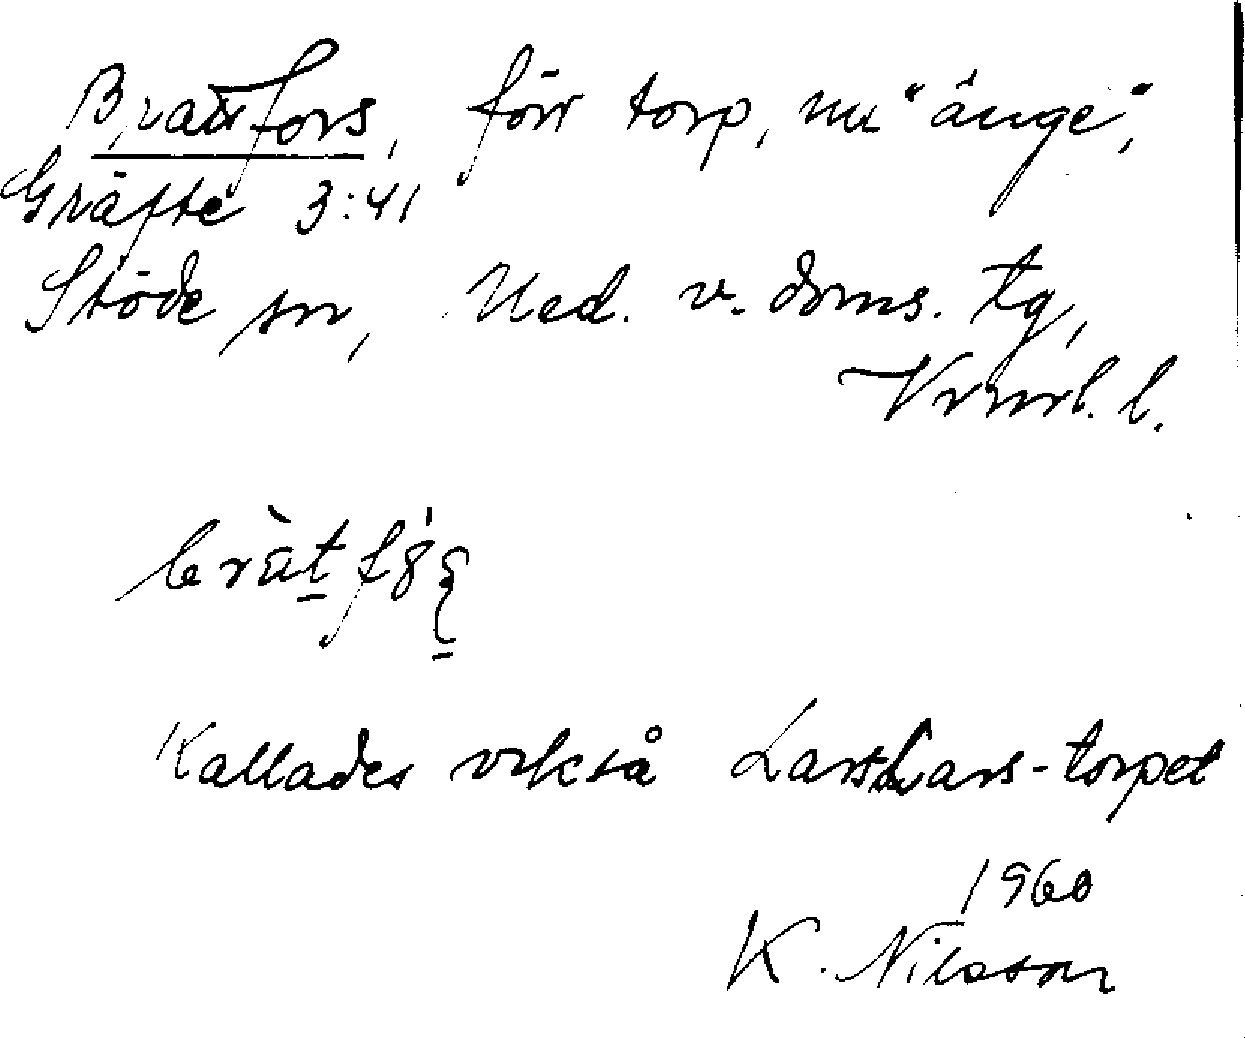 Brattfors, förr torp, nu "änge",
Gräfte 3:41
Stöde sn, Med. v. doms. tg,
Vrnrl. l.
Kallades också LarsLars-torpet
1960
K. Nilsson